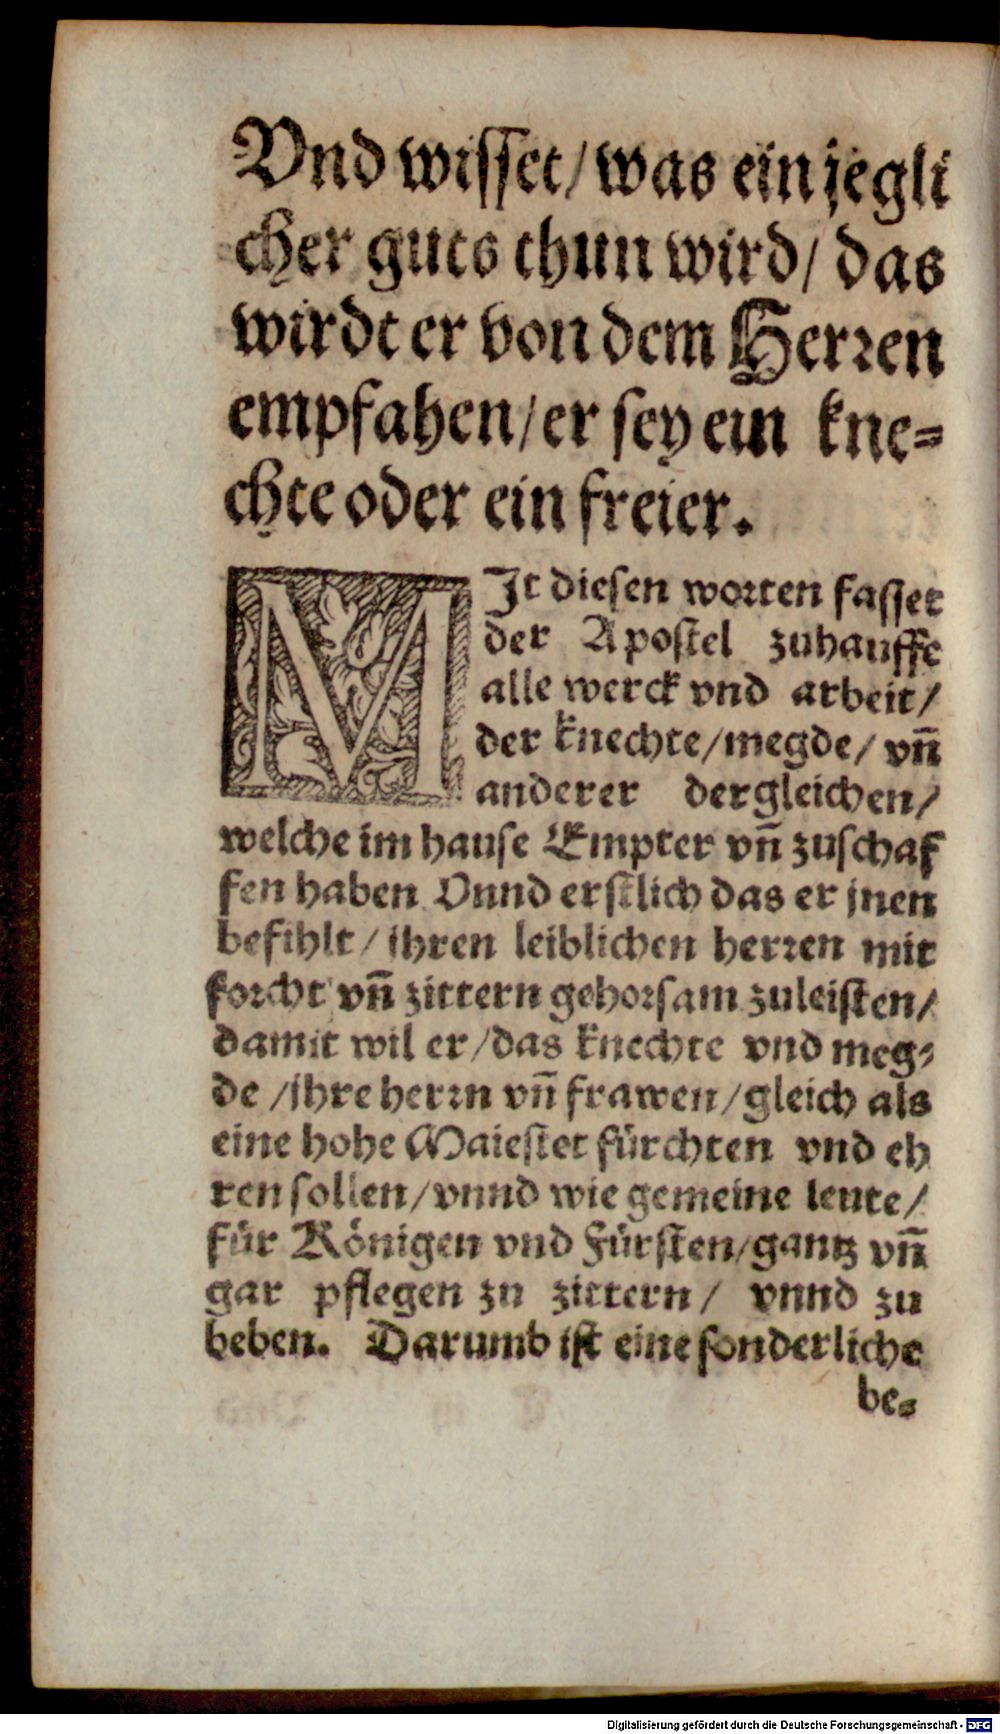 Vnd wisset/ was ein jegli
cher guts thun wird/ das
wirdt er von dem Herren
empfahen/ er sey ein kne=
chte oder ein freier.
MIt diesen worten fasset
der Apostel zuhauffe
alle werck vnd arbeit/
der knechte/ megde/ vñ
anderer dergleichen/
welche im hause Empter vñ zuschaf
fen haben Vnnd erstlich das er jnen
befihlt/ ihren leiblichen herren mit
forcht vñ zittern gehorsam zuleisten/
damit wil er/ das knechte vnd meg=
de/ ihre herrn vñ frawen/ gleich als
eine hohe Maiestet fürchten vnd eh
ren sollen/ vnnd wie gemeine leute/
für Königen vnd Fürsten/ gantz vñ
gar pflegen zu zittern/ vnnd zu
beben. Darumb ist eine sonderliche
be=
Digitalisierung gefördert durch die Deutsche Forschungsgemeinschaft - DFG